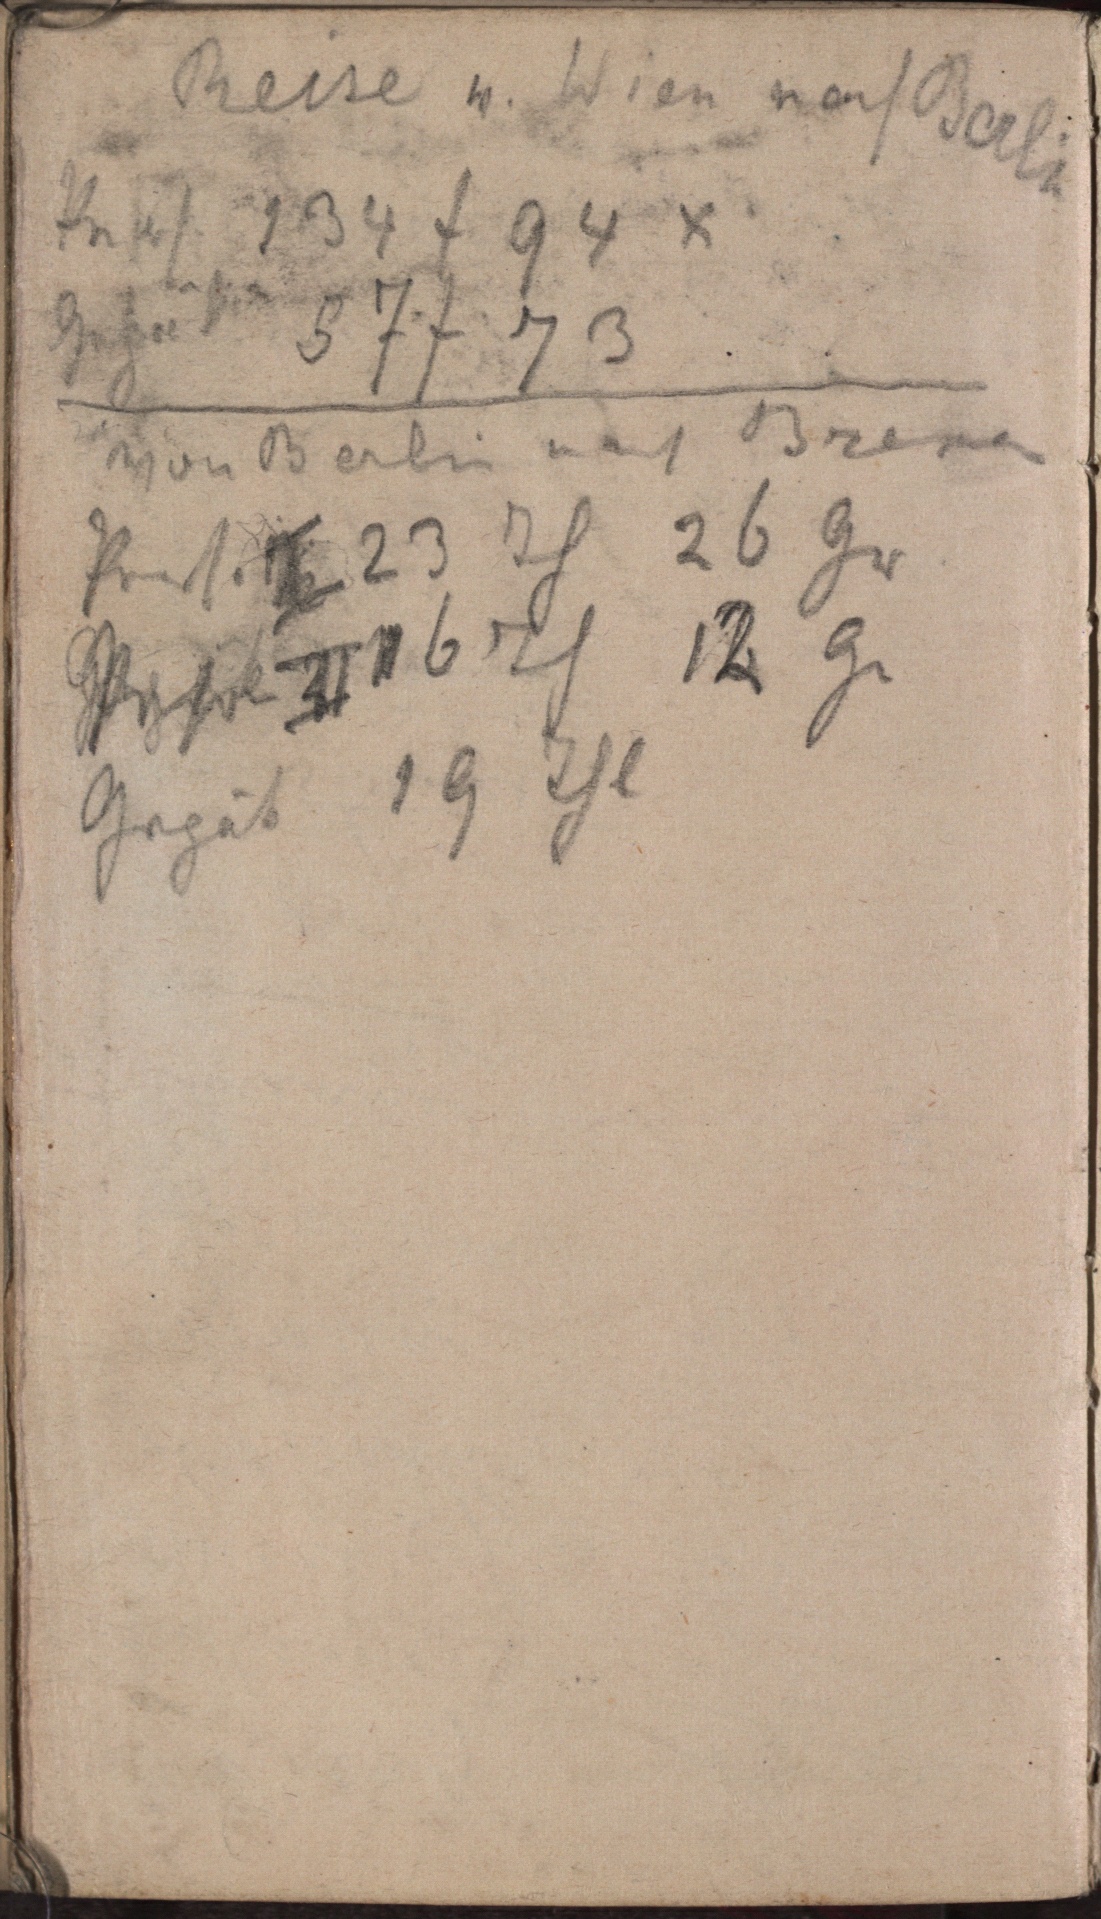 Reise v. Wien nach Berlin
134 f 94 x
57 f 73
von Berlin nach Bremen
23 Th 26 Gr
II 16 Th 12 Gr
Gepäck 19 Thl